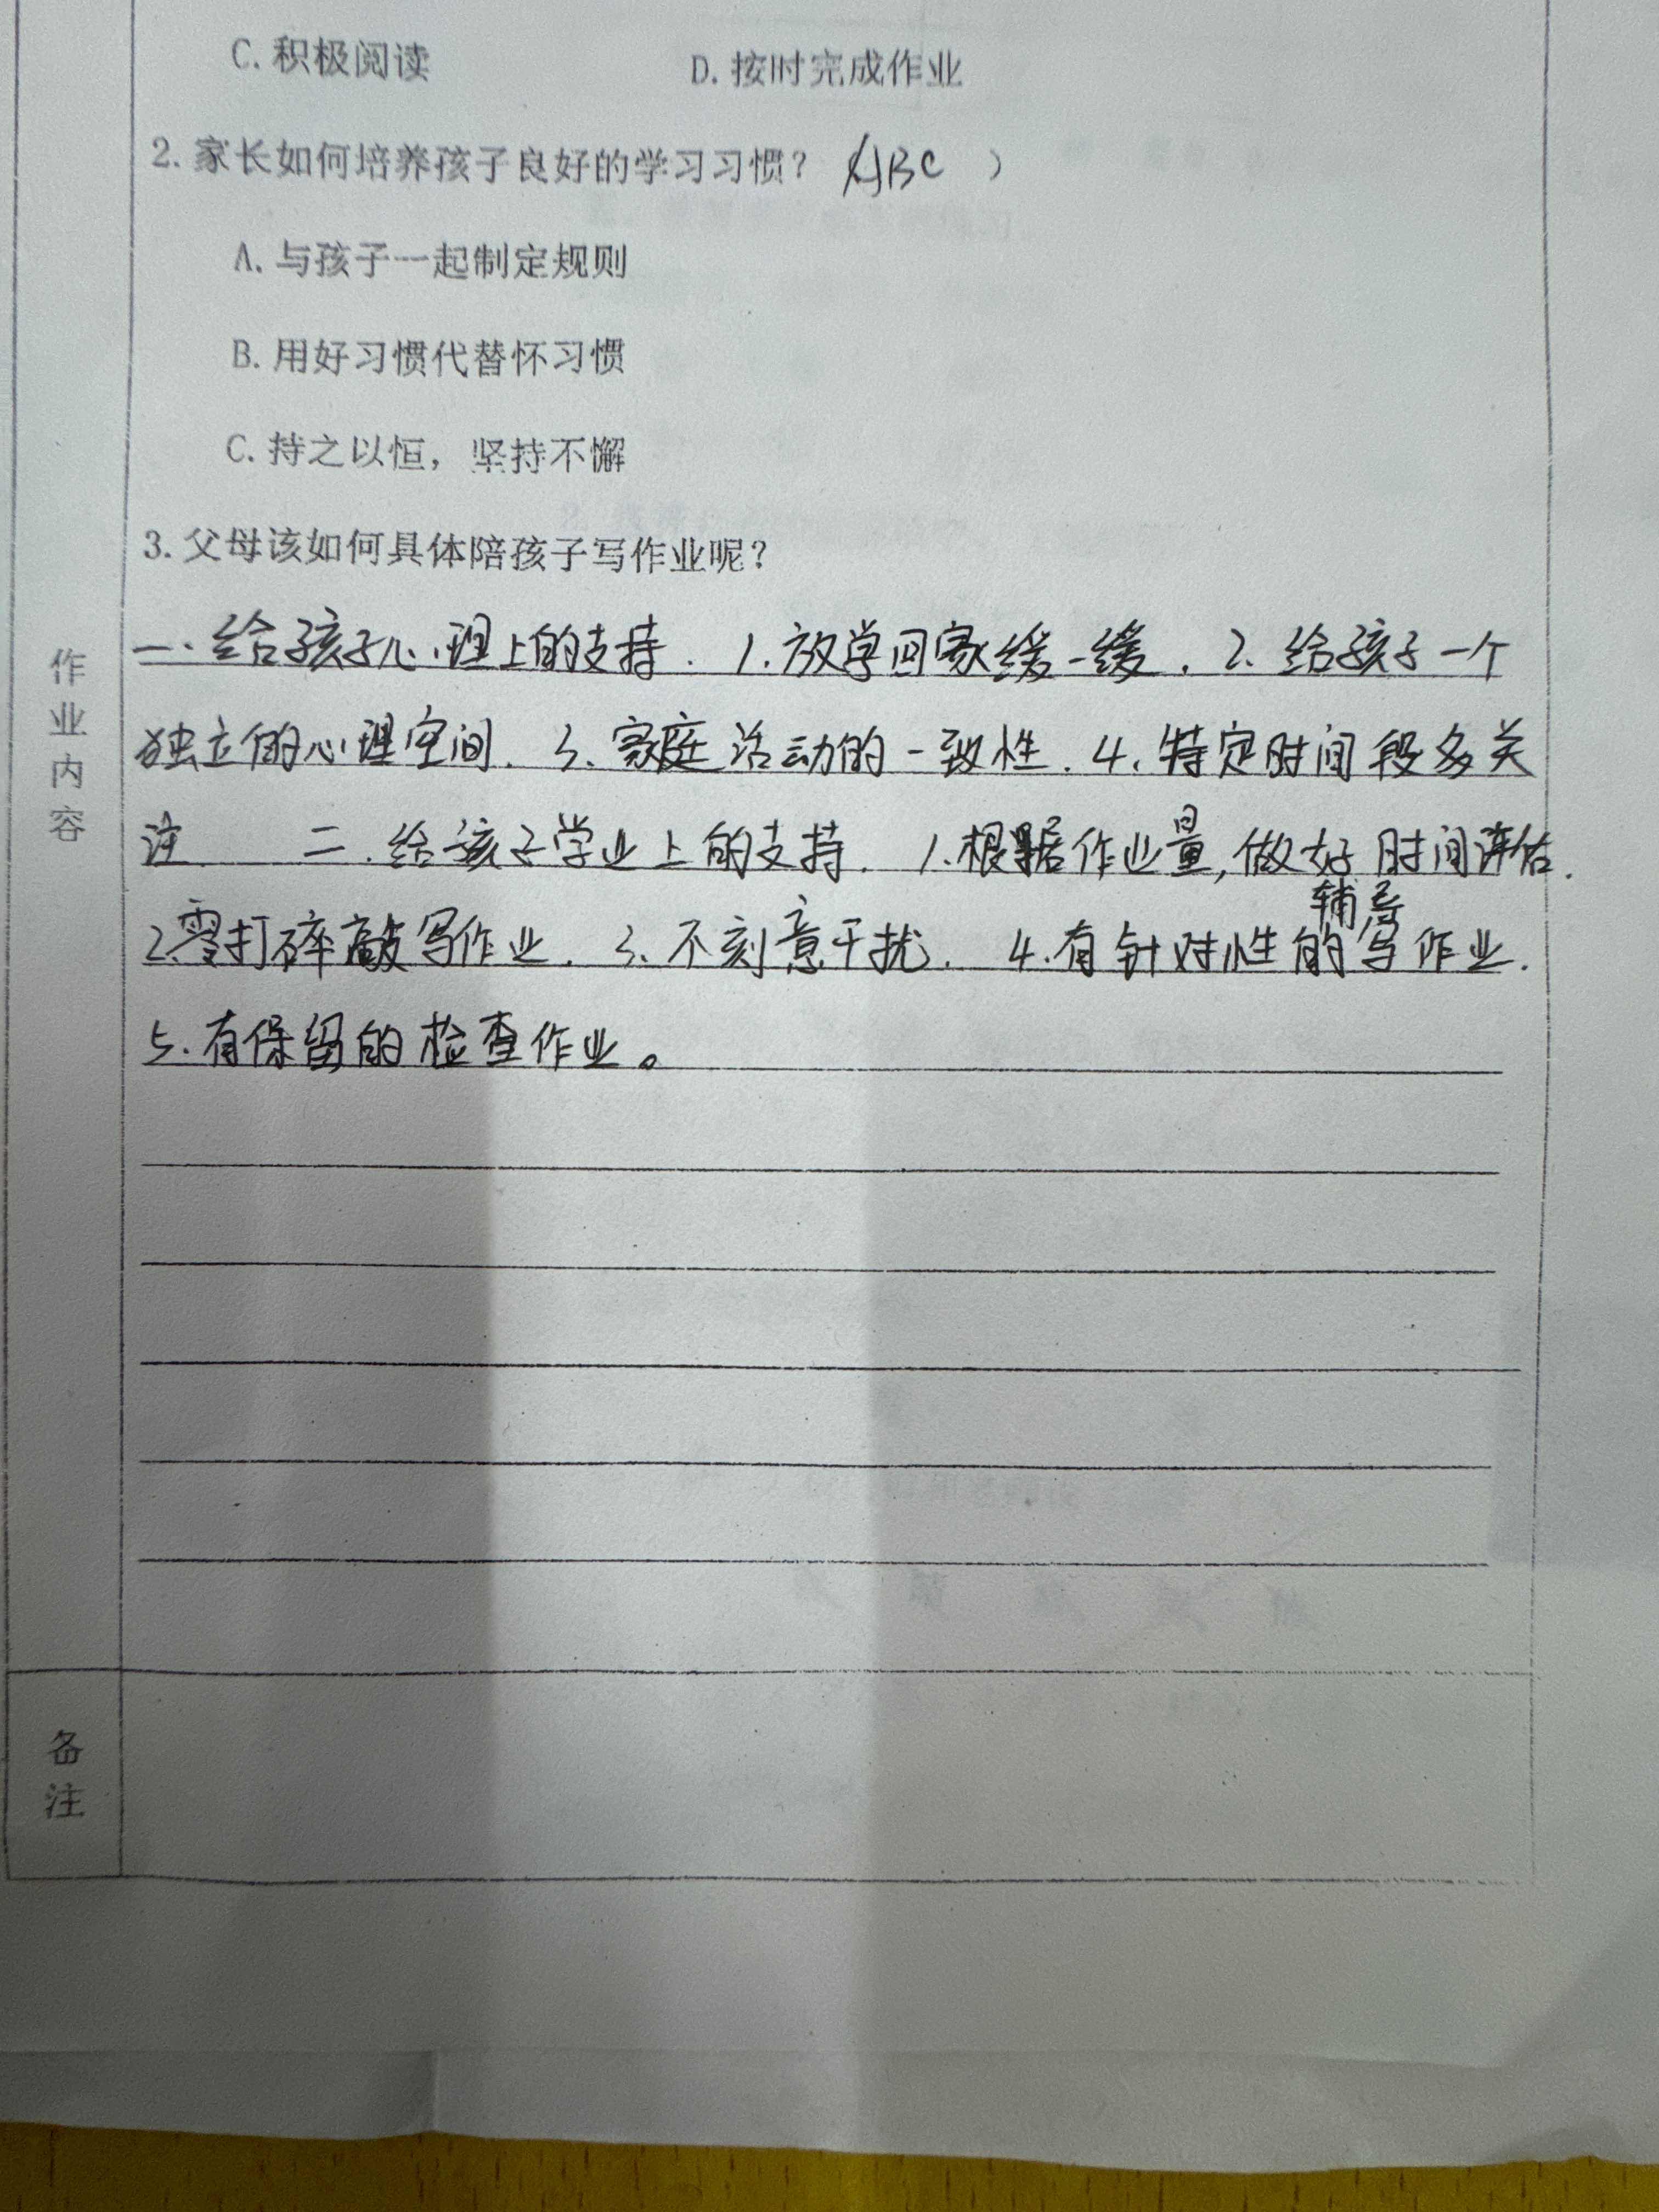 C. 积极阅读 D. 按时完成作业
2. 家长如何培养孩子良好的学习习惯？（ABC ）
A. 与孩子一起制定规则
B. 用好习惯代替怀习惯
C. 持之以恒，坚持不懈
3. 父母该如何具体陪孩子写作业呢？
一. 给孩子心理上的支持. 1. 放学回家缓一缓. 2. 给孩子一个
独立的心理空间. 3. 家庭活动的一致性. 4. 特定时间段多关
注 二. 给孩子学业上的支持. 1. 根据作业量, 做好时间评估.
辅导
2. 零打碎敲写作业. 3. 不刻意干扰. 4. 有针对性的写作业.
5. 有保留的检查作业。
作业内容
备注